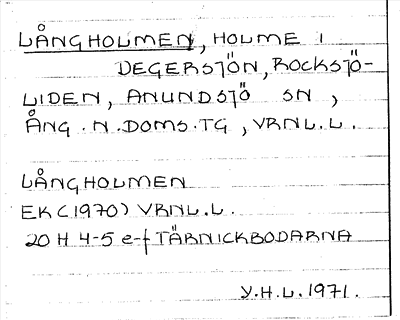 LÅNGHOLMEN, HOLME I
DEGERSJÖN, ROCKSJÖ-
LIDEN, ANUNDSJÖ SN,
ÅNG. N. DOMS. TG, VRNL.L.
LÅNGHOLMEN
EK (1970) VRNL.L.
20 H 4-5 e-f TÄRNICKBODARNA
Y.H.L. 1971.